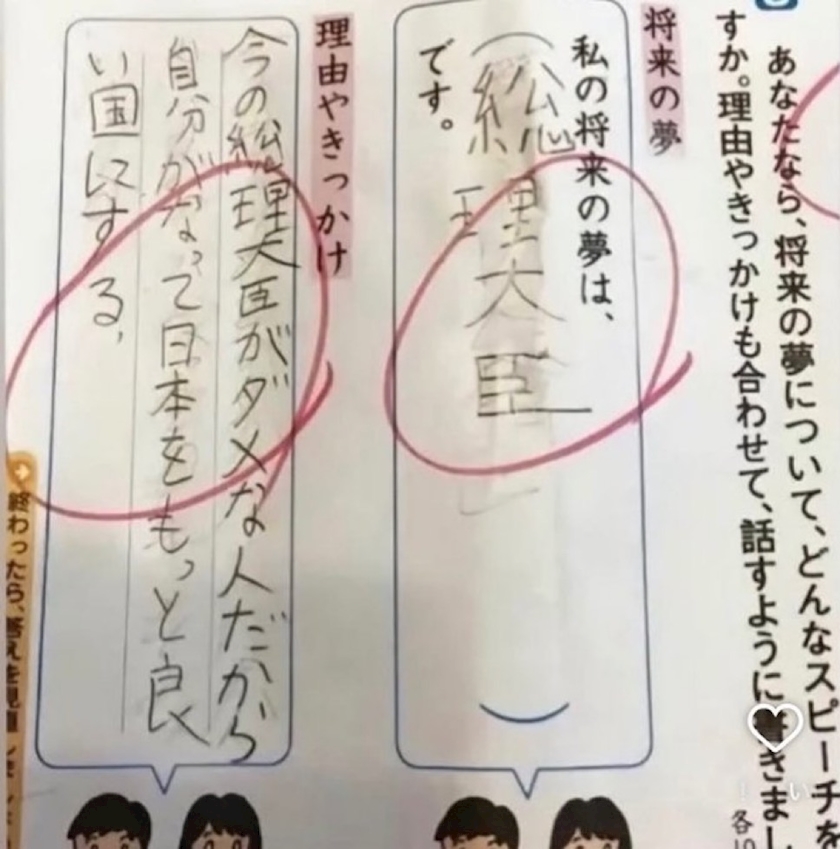 あなたなら、将来の夢について、どんなスピーチを
すか。理由やきっかけも合わせて、話すように書きまし
各10
将来の夢
私の将来の夢は、
（総理大臣）
です。
理由やきっかけ
今の総理大臣がダメな人だから
自分がなって日本をもっと良
い国にする、
終わったら、答えを見直しましょう